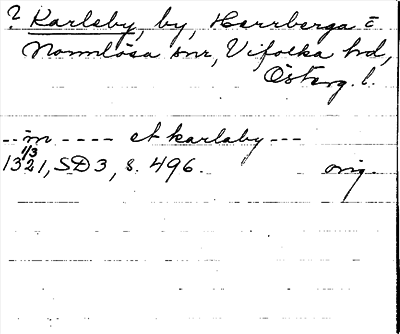 ? Karleby, by, Herrberga o
Normlösa snr, Vifolka hd,
Österg. l.
-- in ---- et karlaby ---
1/3
1321, SD 3, s. 496. orig.